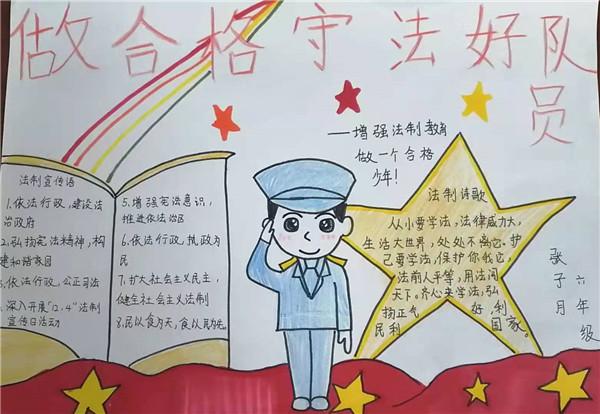 做合格守法好队员
——增强法制教育
做一个合格
少年!
法制宣传语
1.依法行政,建设法
治政府
2.弘扬宪法精神,构
建和谐家园
3.依法行政,公正司法
4.深入开展"12·4"法制
宣传日活动
5.增强宪法意识,
推进依法治区
6.依法行政,执政为
民
7.扩大社会主义民主,
健全社会主义法制
8.民以食为天,食以民为先。
法制诗歌
从小要学法,法律威力大,
生活大世界,处处不离它。护
己要学法,保护你我它,
法前人平等,用法闯
天下。齐心来学法,弘
扬正气好,利
民利国家。
六年级
张子月